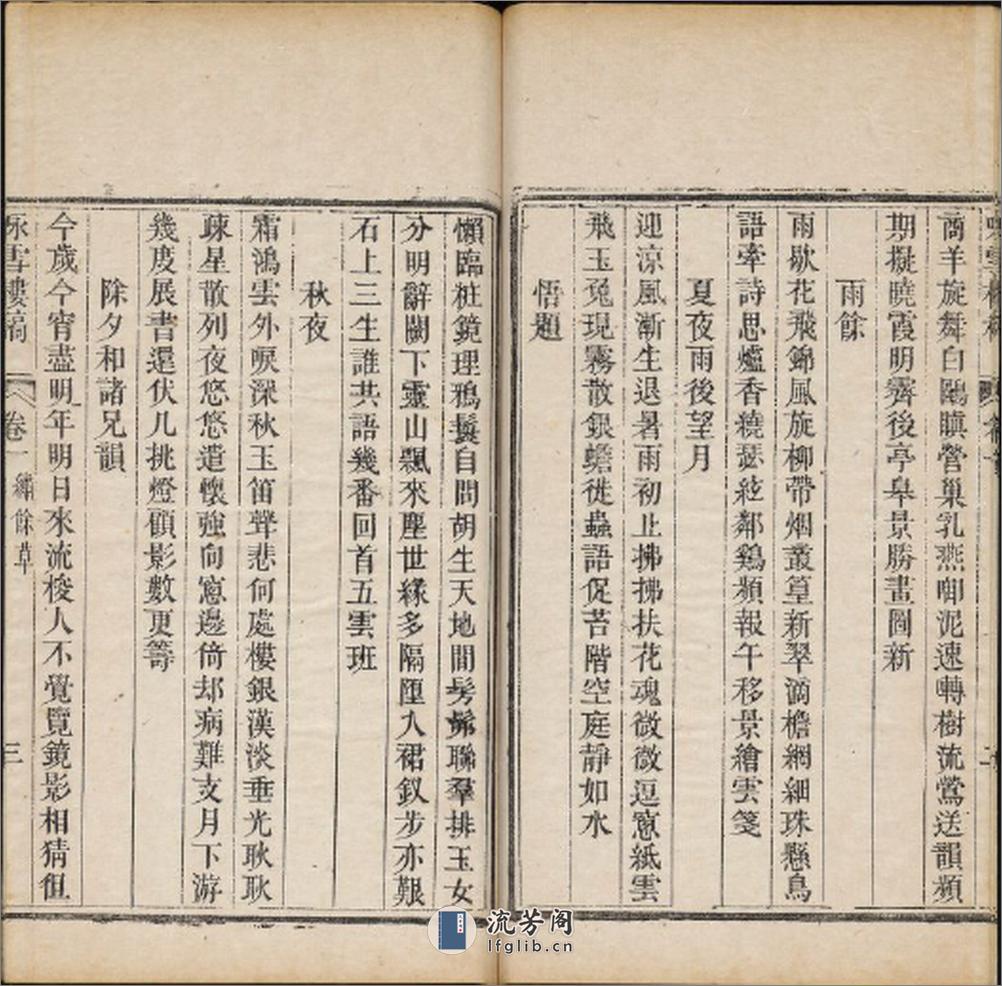 商羊旋舞白鷗瞋營巢乳燕啣泥速囀樹流鶯送韻頻
期擬曉霞明霽後亭臯景勝畫圖新
雨餘
雨歇花飛錦風旋柳帶烟叢篁新翠滴檐網細珠懸鳥
語牽詩思爐香繞瑟絃鄰鷄頻報午移景繪雲箋
夏夜雨後望月
迎涼風漸生退暑雨初止拂拂扶花魂微微逗窓紙雲
飛玉兔現霧散銀蟾徙蟲語促苔階空庭靜如水
悟題
懶臨粧鏡理鴉鬟自問胡生天地間髣髴聯羣排玉女
分明辭闕下靈山飄來塵世緣多隔墮入裙釵步亦艱
石上三生誰共語幾番回首五雲班
秋夜
霜鴻雲外唳深秋玉笛聲悲何處樓銀漢淡垂光耿耿
疎星散列夜悠悠遣懷強向窓邊倚却病難支月下游
幾度展書還伏几挑燈顧影數更籌
除夕和諸兄韻
今歲今宵盡明年明日來流梭人不覺覽鏡影相猜徂
詠雪樓稿 卷一 繡餘草 三
流芳阁
lfglib.cn